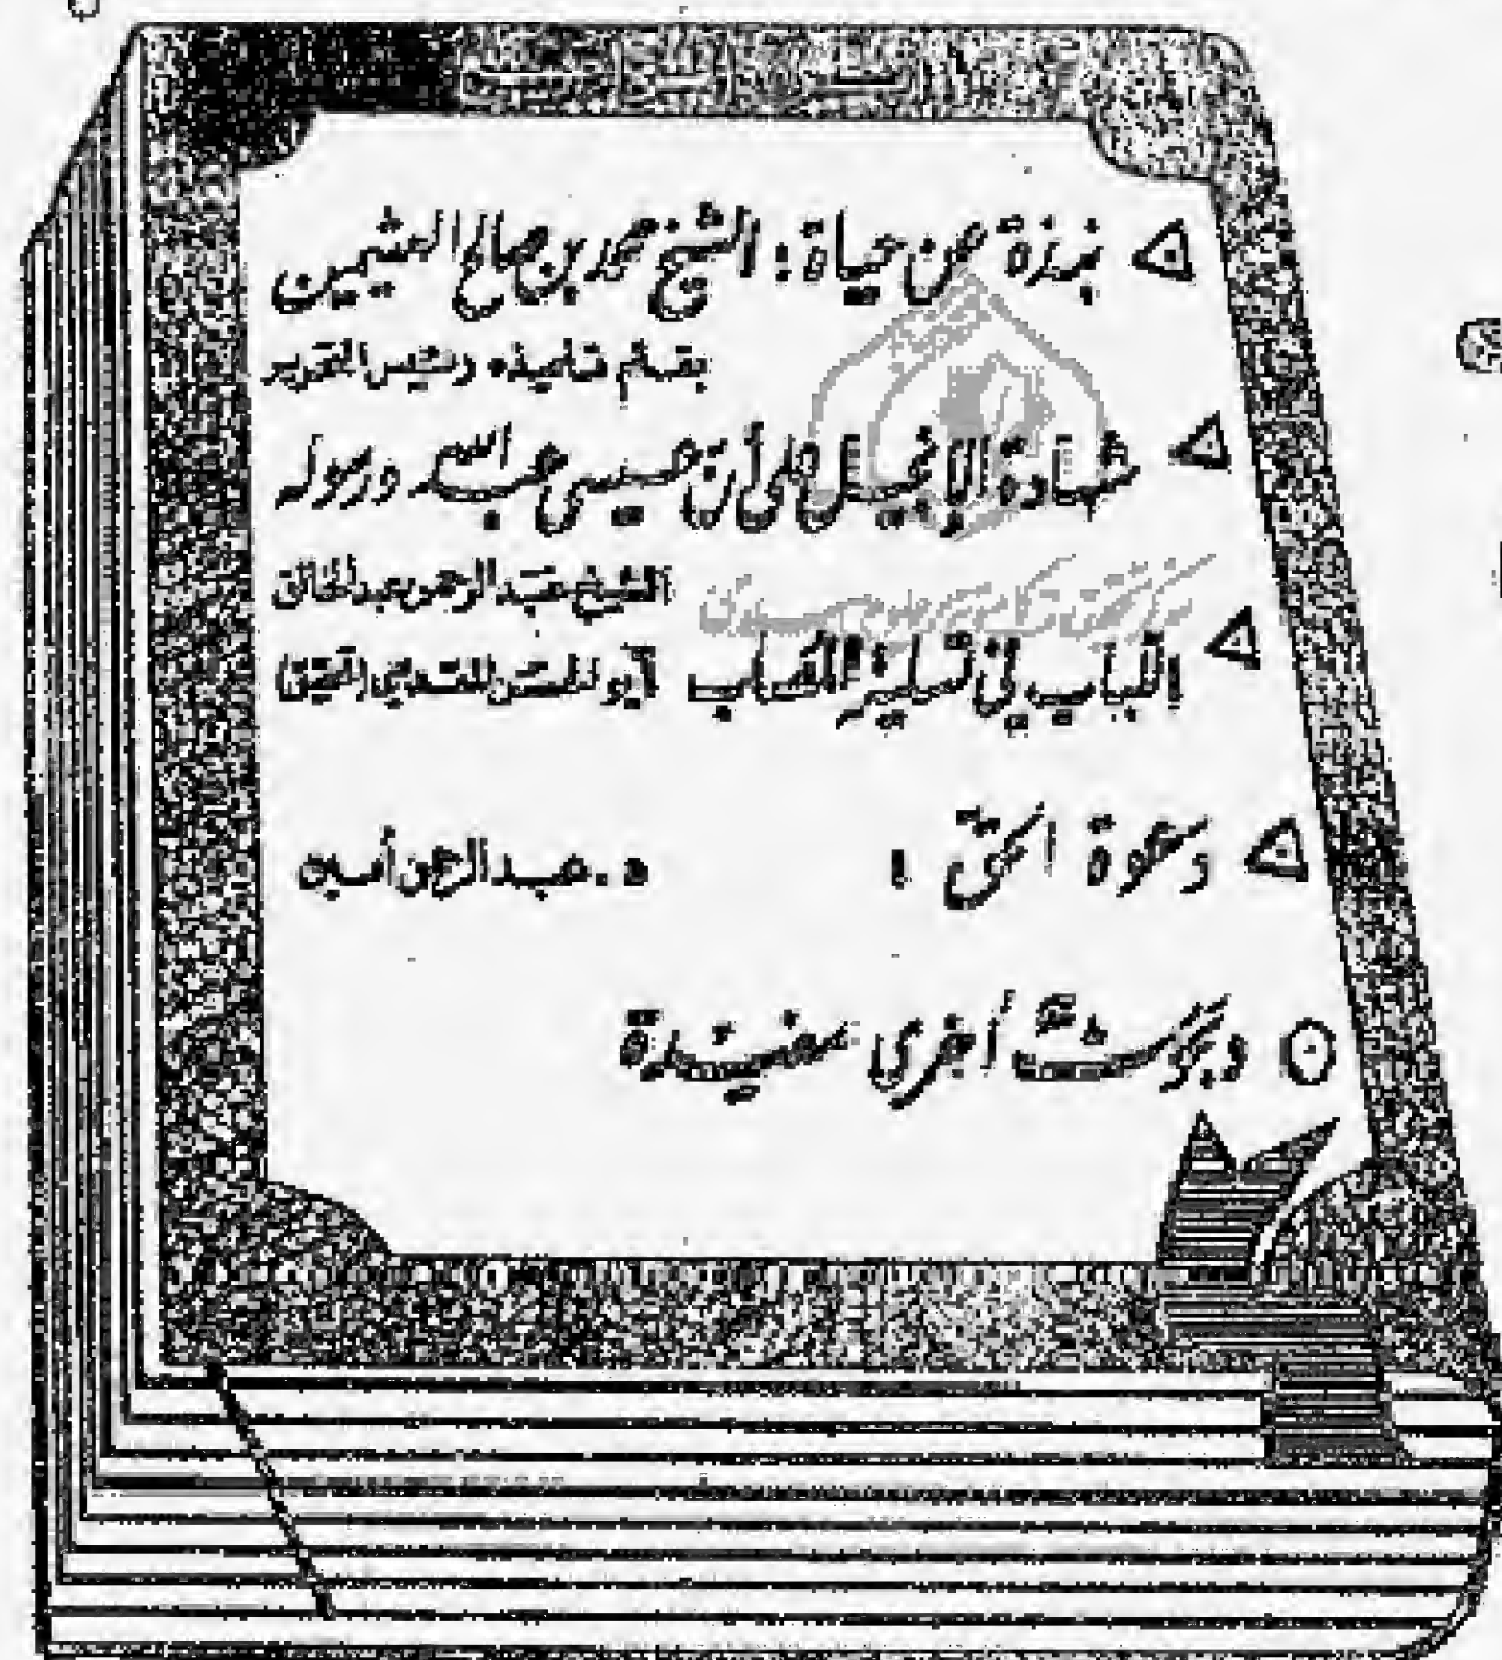 نبذة عن حياة : الشيخ محمد بن صالح العثيمين
بقلم تلميذه رئيس التحرير
شهادة الإنجيل على أن عيسى عبد الله ورسوله
الشيخ عبد الرحمن عبد الخالق
اللباب في تسلية المصاب أبو الحسن المقدسي (تحقيق)
دعوة الحق : د. عبد الرحمن
وبحوث أخرى مفيدة